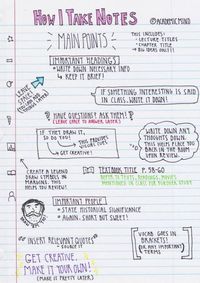 HOW I TAKE NOTES
@ACADEMICMIND
MAIN POINTS
THIS INCLUDES:
LECTURE TITLES
CHAPTER TITLE
BIG IDEAS ONLY!!
IMPORTANT HEADINGS
WRITE DOWN NECESSARY INFO
KEEP IT BRIEF!
LEAVE
SPACE!
IF SOMETHING INTERESTING IS SAID
IN CLASS - WRITE IT DOWN!
HAVE QUESTIONS? ASK THEM!
(LEAVE SPACE TO ANSWER LATER)
IF THEY DRAW IT,
SO DO YOU!
THIS PROVIDES
VISUAL CUES
GET CREATIVE!
WRITE DOWN ANY
THOUGHTS DOWN.
THIS HELPS PLACE YOU
BACK IN THE MOMENT
UPON REVIEW.
CREATE A LEGEND
DRAW SYMBOLS IN
MARGINS. THIS
HELPS YOU REVIEW!
TEXTBOOK TITLE P. 58-60
REFER TO TEXTS, READINGS, MOVIES
MENTIONED IN CLASS FOR FURTHER STUDY
IMPORTANT PEOPLE
STATE HISTORICAL SIGNIFICANCE
AGAIN, SHORT BUT SWEET!
"INSERT RELEVANT QUOTES"
SOURCE IT
VOCAB GOES IN
BRACKETS!
(OR ANY IMPORTANT
TERMS)
GET CREATIVE,
MAKE IT YOUR OWN!
(MAKE IT PRETTY LATER)